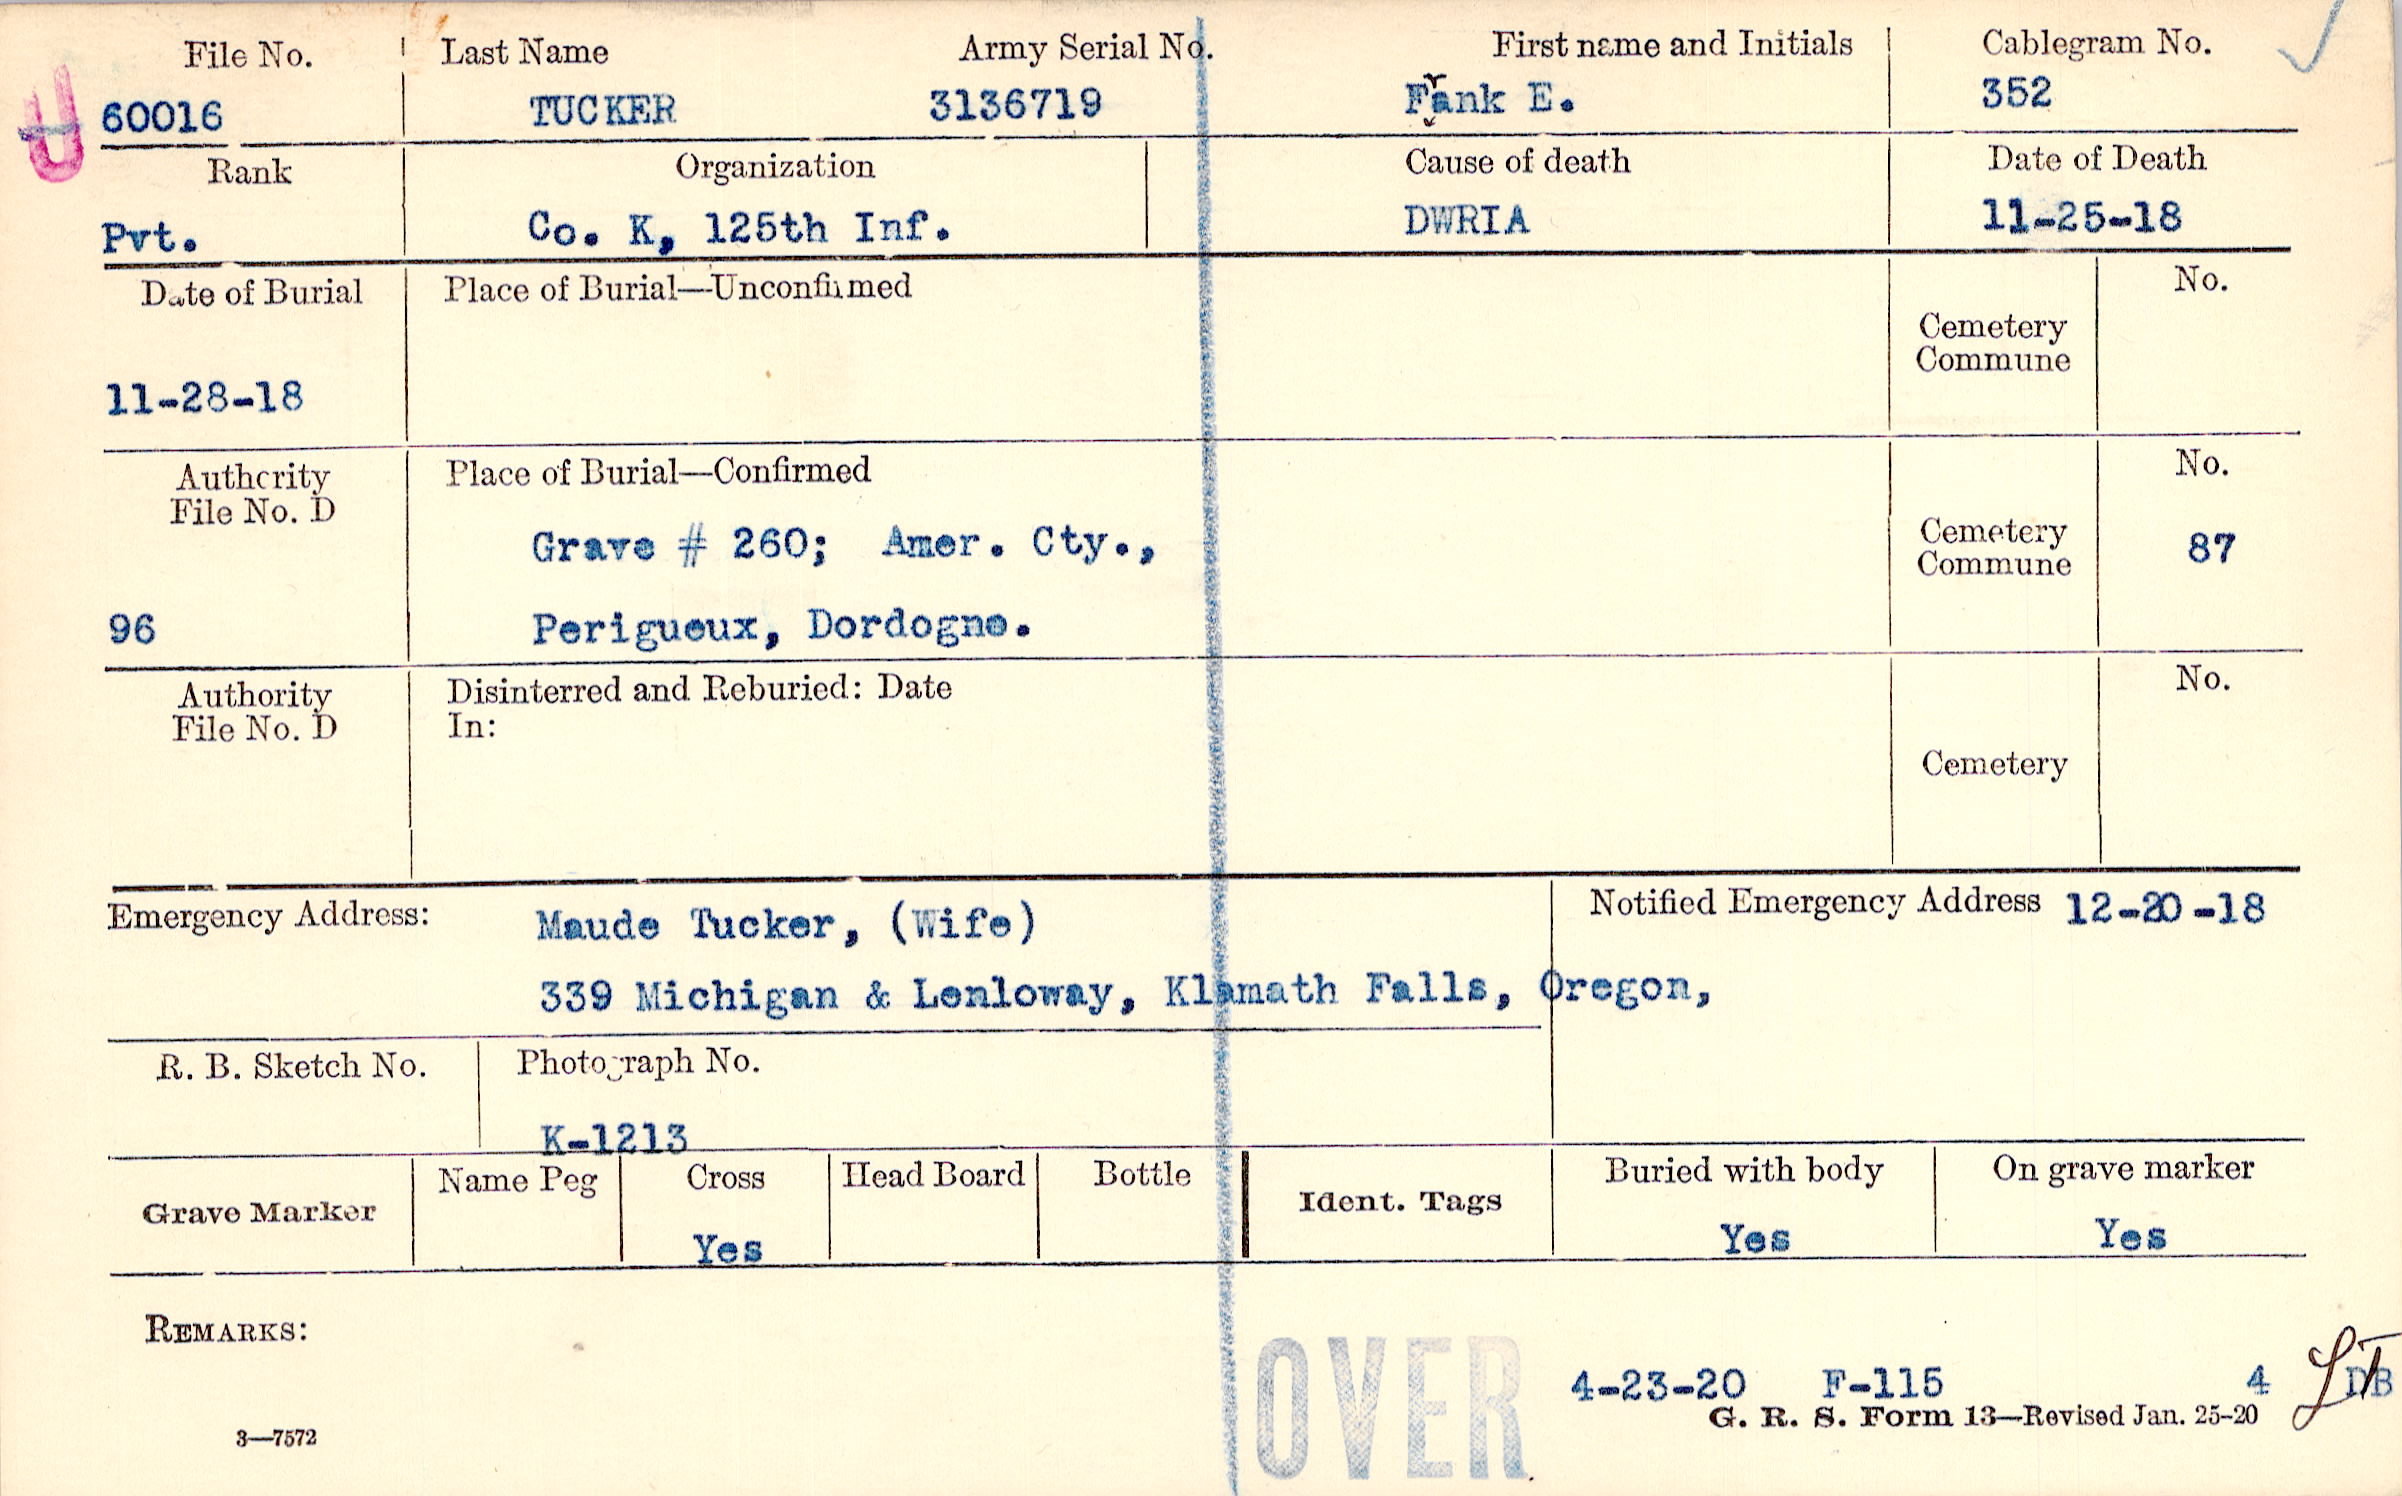 File No. Last Name Army Serial No. First name and Initials Cablegram No.
60016 TUCKER 3136719 Frank E. 352
Rank Organization Cause of death Date of Death
Pvt. Co. K, 125th Inf. DWRIA 11-25-18
Date of Burial Place of Burial—Unconfirmed No.
Cemetery
Commune
11-28-18
Authority Place of Burial—Confirmed No.
File No. D
Grave # 260; Amer. Cty., Cemetery
Commune 87
96 Perigueux, Dordogne.
Authority Disinterred and Reburied: Date No.
File No. D In:
Cemetery
Emergency Address: Maude Tucker, (Wife) Notified Emergency Address 12-20-18
339 Michigan & Lenloway, Klamath Falls, Oregon,
R. B. Sketch No. Photograph No.
K-1213
Grave Marker Name Peg Cross Head Board Bottle Ident. Tags Buried with body On grave marker
Yes Yes Yes
REMARKS:
OVER
4-23-20 F-115 4 DB
G. R. S. Form 13—Revised Jan. 25-20
3—7572